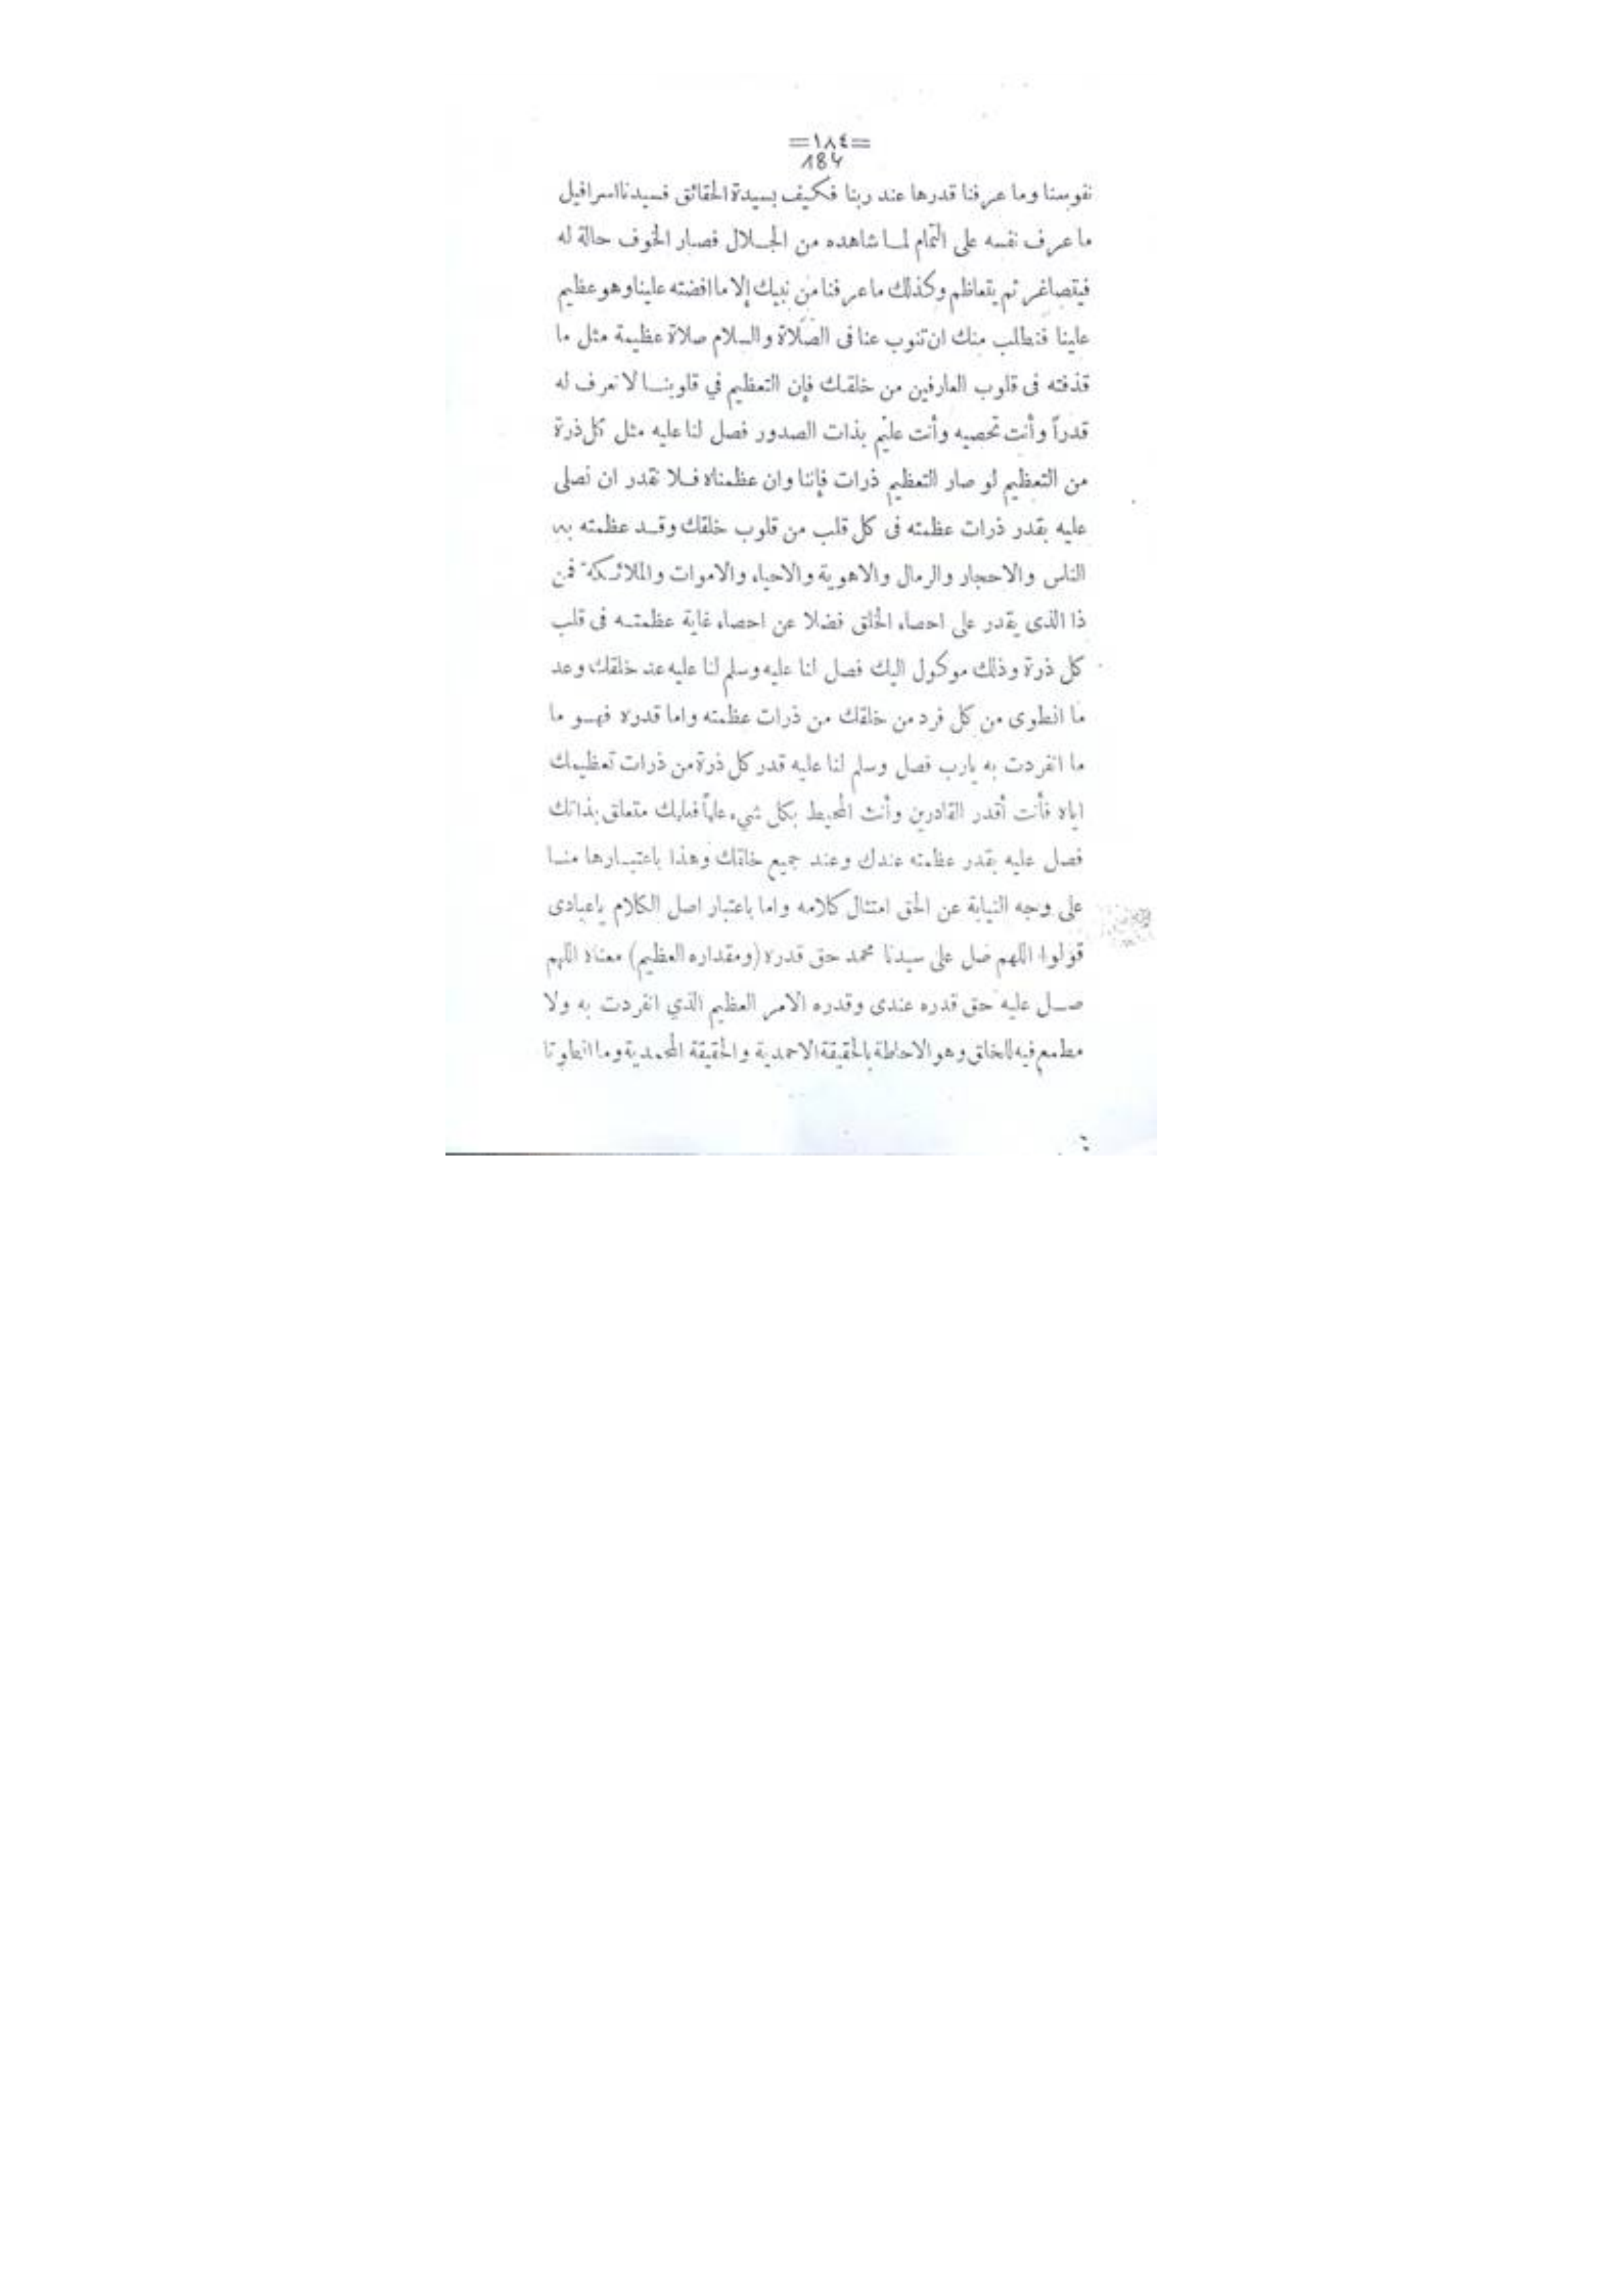 =١٨٤=
184
نفوسنا وما عرفنا قدرها عند ربنا فكيف بسيدة الحقائق فسيدنا اسرافيل
ما عرف نفسه على التمام لما شاهده من الجلال فصار الخوف حالة له
فيتصاغر ثم يتعاظم وكذلك ما عرفنا من نبيك إلا ما افضته علينا وهو عظيم
علينا فنطلب منك ان تنوب عنا فى الصلاة والسلام صلاة عظيمة مثل ما
قذفته فى قلوب العارفين من خلقك فإن التعظيم في قلوبنا لا نعرف له
قدراً وأنت تحصيه وأنت عليم بذات الصدور فصل لنا عليه مثل كل ذرة
من التعظيم لو صار التعظيم ذرات فإننا وان عظمناه فلا نقدر ان نصلى
عليه بقدر ذرات عظمته فى كل قلب من قلوب خلقك وقد عظمته به
الناس والاحجار والرمال والاهوية والاحياء والاموات والملائكة فمن
ذا الذى يقدر على احصاء الخلق فضلا عن احصاء غاية عظمته فى قلب
كل ذرة وذلك موكول اليك فصل لنا عليه وسلم لنا عليه عد خلقك وعد
ما انطوى من كل فرد من خلقك من ذرات عظمته واما قدره فهو ما
ما انفردت به يارب فصل وسلم لنا عليه قدر كل ذرة من ذرات تعظيمك
اياه فأنت أقدر القادرين وأنت المحيط بكل شيء علماً فعلمك متعلق بذاتك
فصل عليه بقدر عظمته عندك وعند جميع خلقك وهذا باعتبارها منا
على وجه النيابة عن الحق امتثال كلامه واما باعتبار اصل الكلام ياعبادى
قولوا اللهم صل على سيدنا محمد حق قدره (ومقداره العظيم) معناه اللهم
صل عليه حق قدره عندى وقدره الامر العظيم الذي انفردت به ولا
مطمع فيه للخلق وهو الاحاطة بالحقيقة الاحمدية والحقيقة المحمدية وما انطوتا